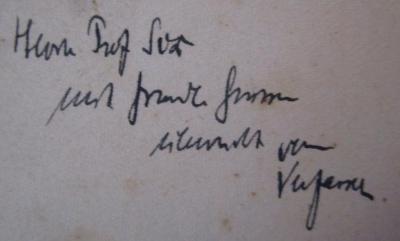 Herrn Prof Six
mit freundl. Grüssen
überreicht vom
Verfasser.